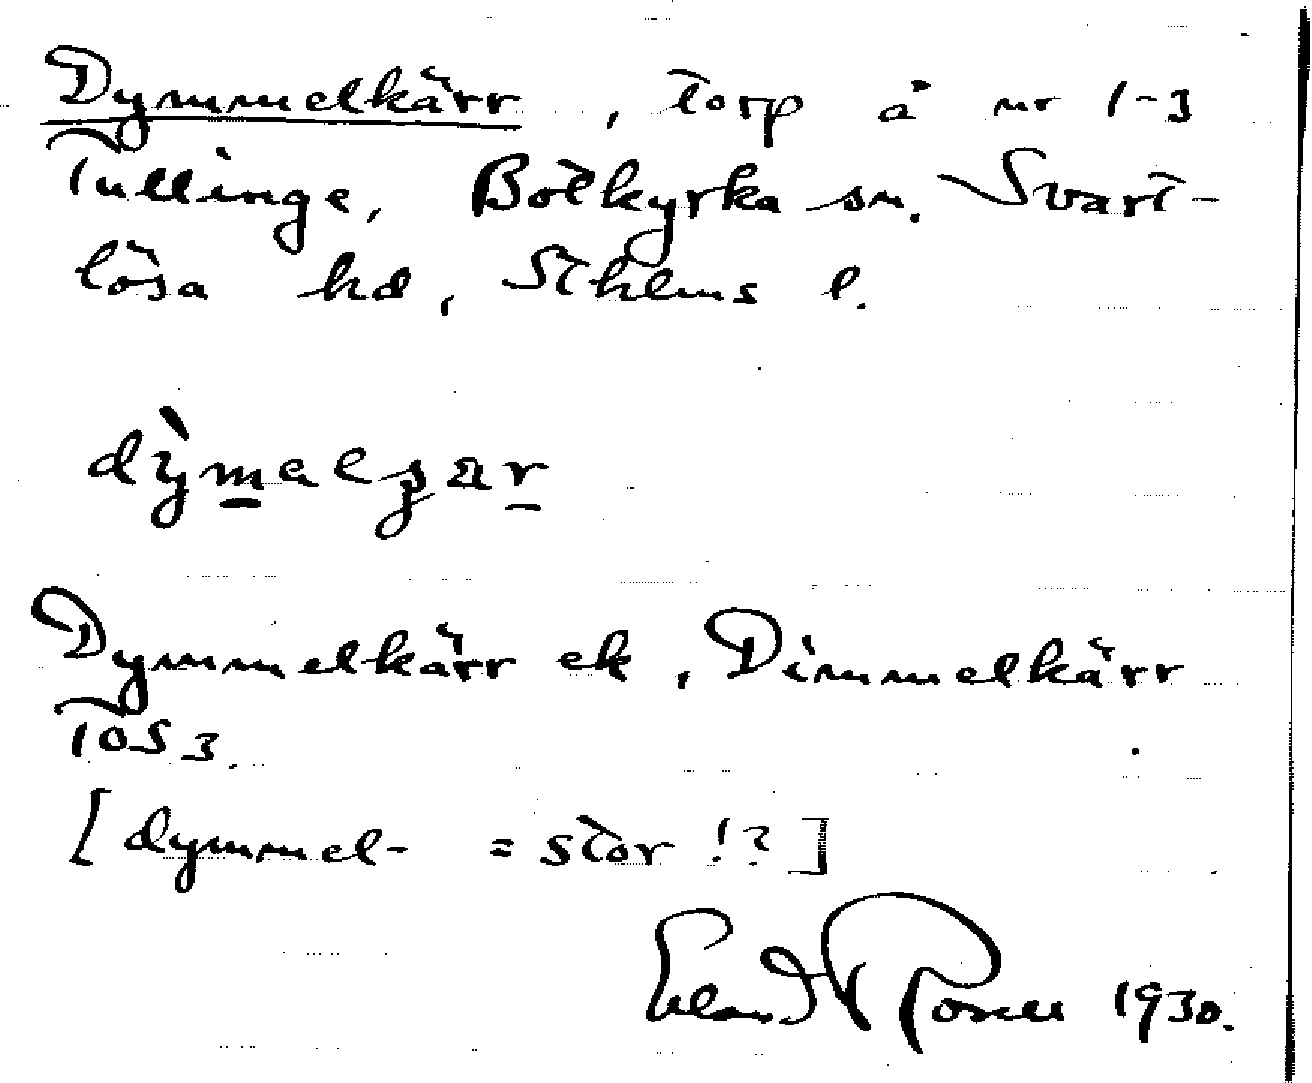 Dymmelkärr, torp å nr 1-3
Tullinge, Botkyrka sn. Svart-
lösa hd, Sthlms l.
Dymmelkärr ek, Dimmelkärr
TOS 3.
[dymmel- = stor !?]
Erland Rosell 1930.